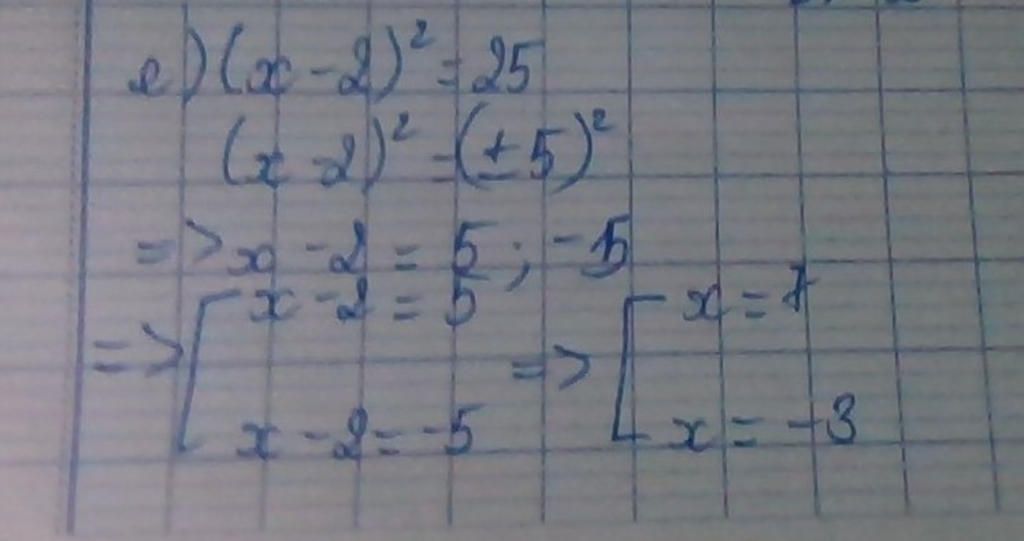 e) (x - 2)² = 25
(x - 2)² = (± 5)²
=> x - 2 = 5 ; -5
=> [ x - 2 = 5 => [ x = 7
x - 2 = -5 x = -3